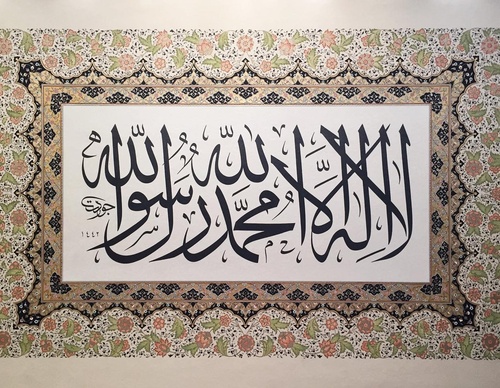 لا اله الا الله محمد رسول الله
جودت
١٤٤٢